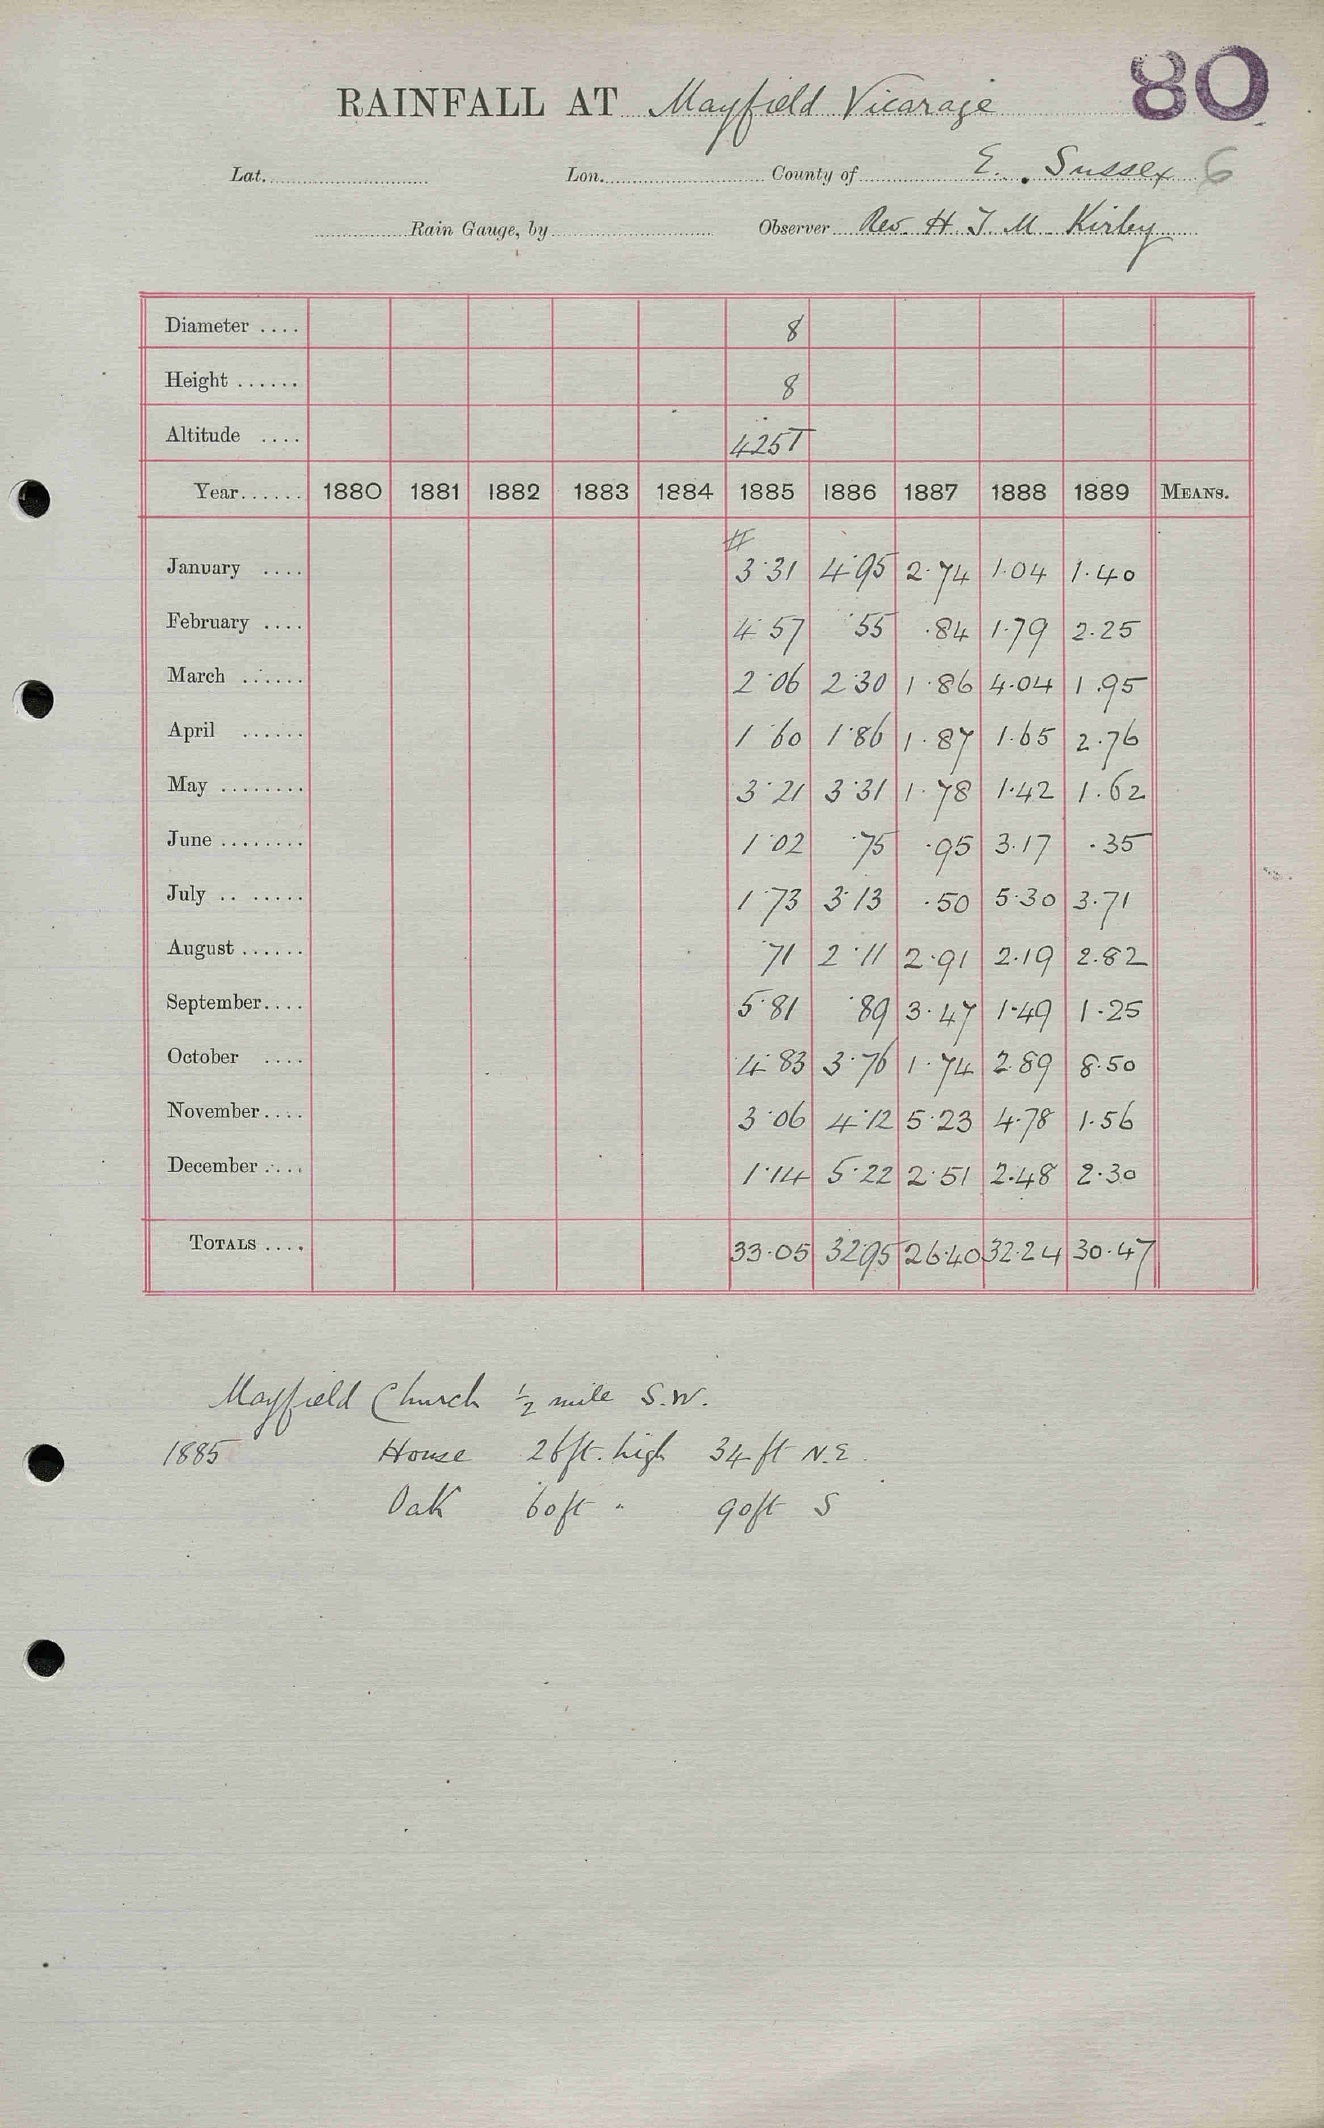 80
RAINFALL AT Mayfield Vicarage
Lat. Lon. County of E. Sussex 6
Rain Gauge, by Observer Rev. H. T. M. Kirby
Diameter .... 8
Height ...... 8
Altitude .... 425T
Year...... 1880 1881 1882 1883 1884 1885 1886 1887 1888 1889 MEANS.
#
January .... 3.31 4.95 2.74 1.04 1.40
February .... 4.57 .55 .84 1.79 2.25
March ...... 2.06 2.30 1.86 4.04 1.95
April ...... 1.60 1.86 1.87 1.65 2.76
May ........ 3.21 3.31 1.78 1.42 1.62
June ........ 1.02 .75 .95 3.17 .35
July .. ...... 1.73 3.13 .50 5.30 3.71
August ...... .71 2.11 2.91 2.19 2.82
September.... 5.81 .89 3.47 1.49 1.25
October .... 4.83 3.76 1.74 2.89 8.50
November.... 3.06 4.12 5.23 4.78 1.56
December .... 1.14 5.22 2.51 2.48 2.30
TOTALS .... 33.05 32.95 26.40 32.24 30.47
Mayfield Church ½ mile S.W.
1885 House 26ft. high 34ft N.E.
Oak 60ft " 90ft S